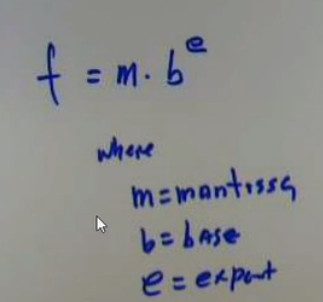 f = m · b^e
where
m = mantissa
b = base
e = expont